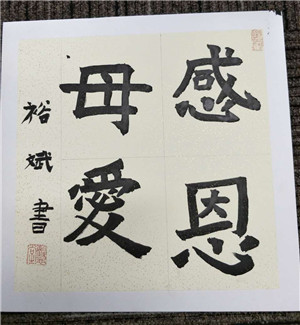 感恩
母愛
裕斌書